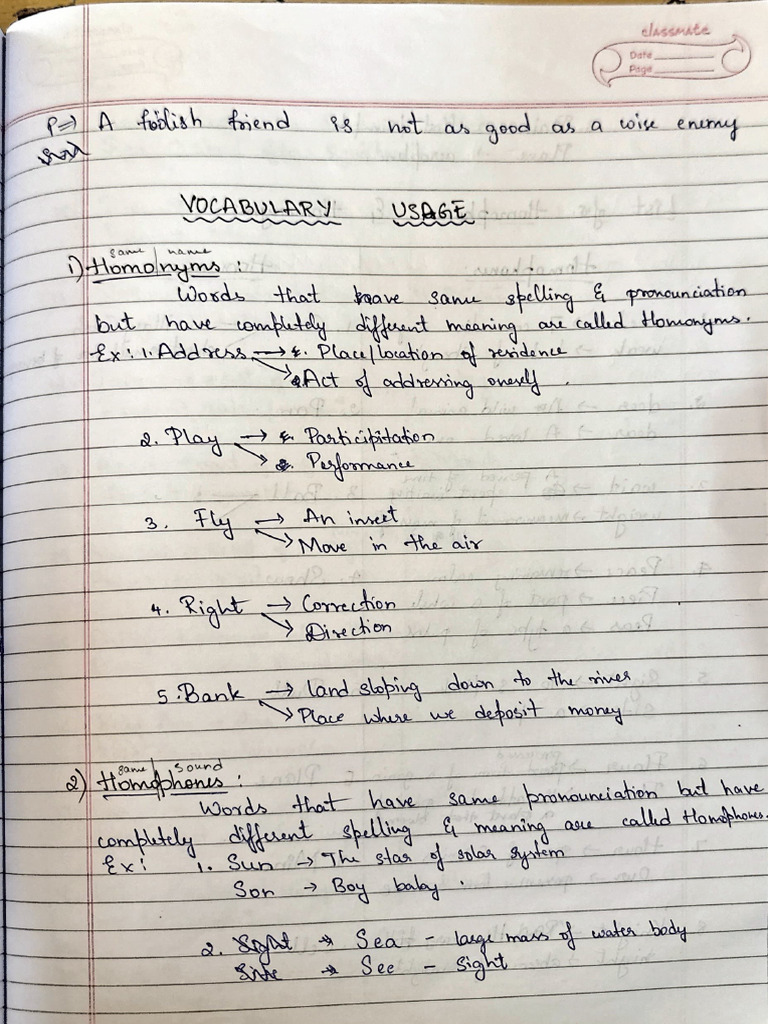 classmate
Date
Page
P⇒ A foolish friend is not as good as a wise enemy
VOCABULARY USAGE
same | name
1) Homo|nyms :
Words that have same spelling & pronounciation
but have completely different meaning are called Homonyms.
Ex: 1. Address → Place/location of residence
→ Act of addressing oneself.
2. Play → Participitation
→ Performance
3. Fly → An insect
→ Move in the air
4. Right → Correction
→ Direction
5. Bank → land sloping down to the river
→ Place where we deposit money
same | sound
2) Homo|phones :
Words that have same pronounciation but have
completely different spelling & meaning are called Homophones.
Ex: 1. Sun → The star of solar system
Son → Boy baby.
2. Sight → Sea - large mass of water body
→ See - Sight